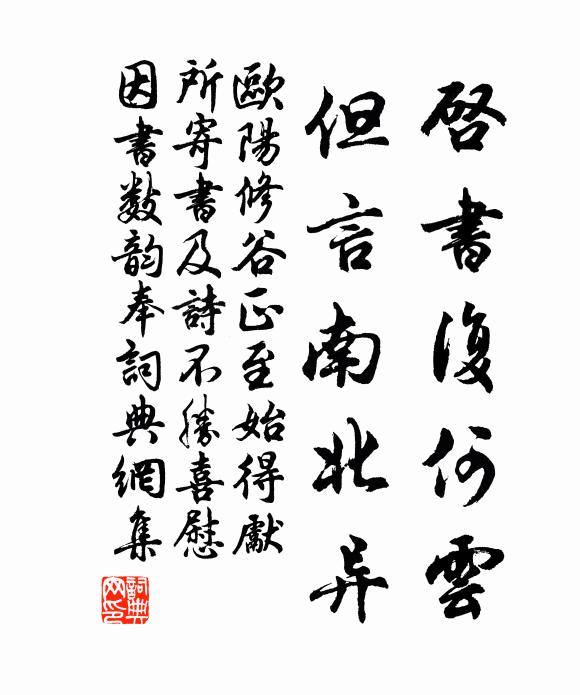 啓書復何雲
但言南北异
歐陽修谷正至始得獻
所寄書及詩不勝喜慰
因書數韵奉詞典網集
詞典網印